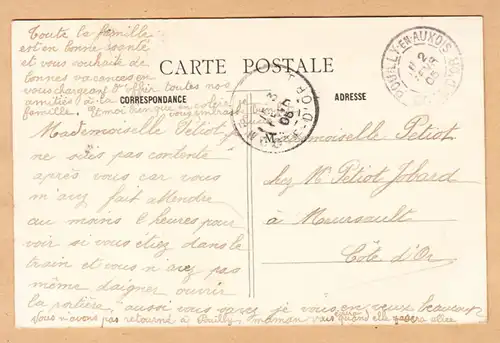 Toute la famille
est en bonne santé
et vous souhaite de
bonnes vacances en
vous chargeant d'offrir toutes nos
amitiés à la
famille.
CARTE POSTALE
CORRESPONDANCE
ADRESSE
POUILLY-EN-AUXOIS
2
05
Mademoiselle Petiot je
ne suis pas contente
après vous car vous
m'avez fait attendre
au moins heures pour
voir si vous étiez dans le
train et vous n'avez pas
même daigner ouvrir
la portière, aussi vous savez je vous en veux beaucoup
Nous n'avons pas retourné à Pouilly, maman
Mademoiselle Petiot
chez Mr Petiot Jobard
à Meursault
Côte d'Or